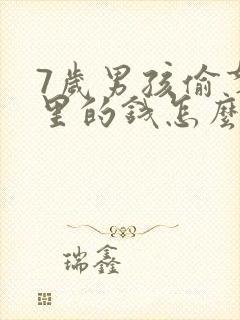 7歲男孩偷
里的錢怎麼
瑞鑫